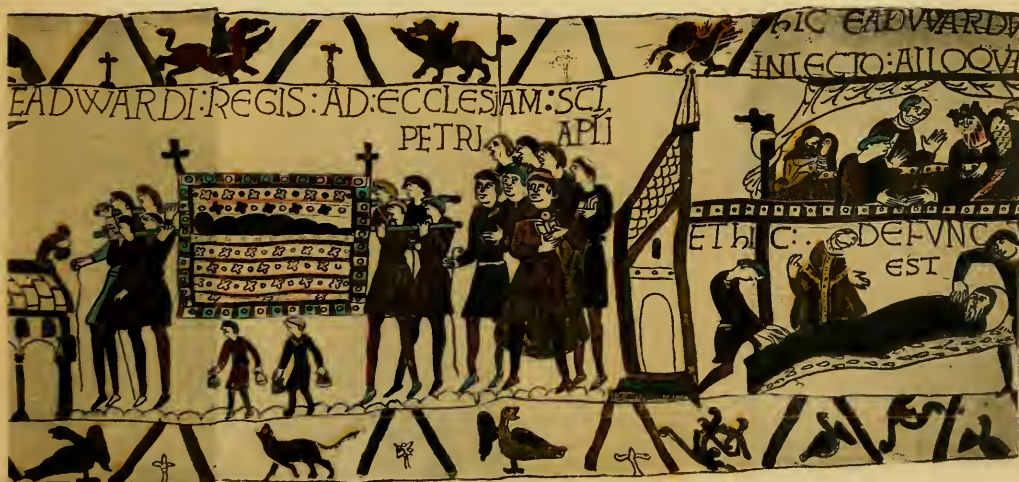 EADWARDI:REGIS:AD:ECCLESIAM:SCI
PETRI APLI
hIC EADVVARDV
INLECTO:ALLOQVI
ET hIC: DEFVNC
EST